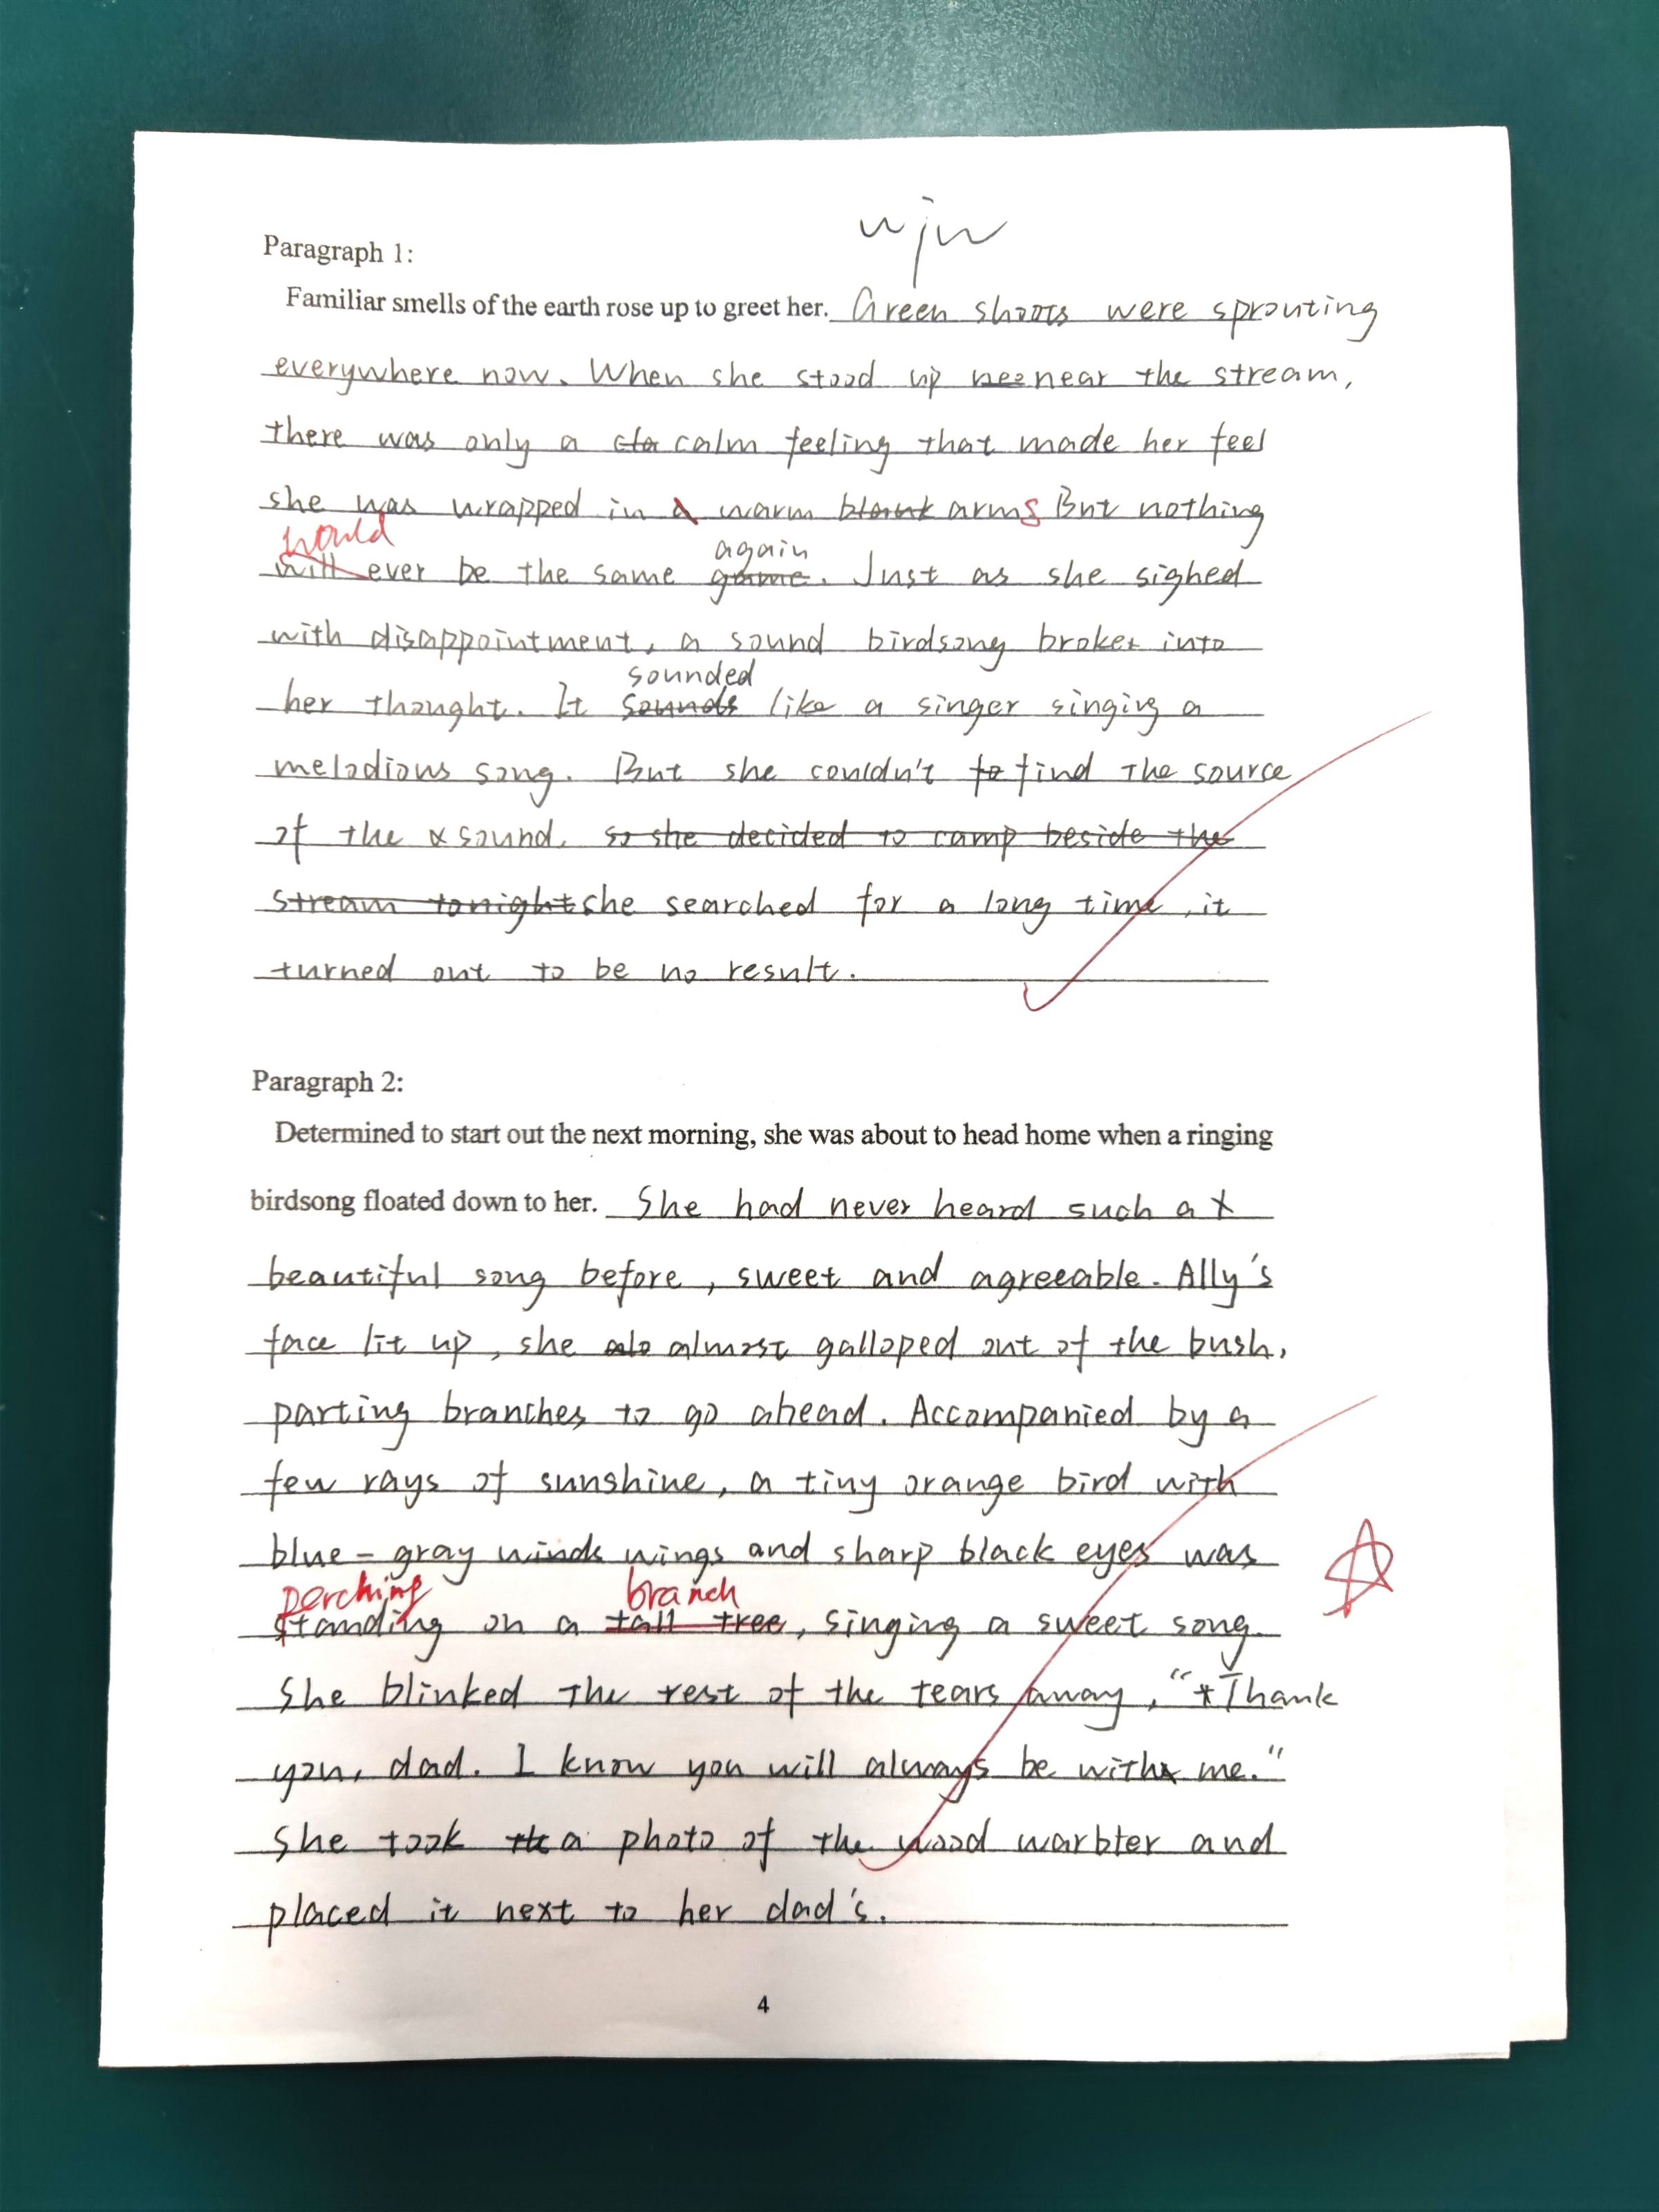 wjw
Paragraph 1:
Familiar smells of the earth rose up to greet her. Green shoots were sprouting
everywhere now. When she stood up near the stream,
there was only a calm feeling that made her feel
she was wrapped in warm arms But nothing
would
again
ever be the same . Just as she sighed
with disappointment, a sound birdsong broke into
sounded
her thought. It like a singer singing a
melodious song. But she couldn't find the source
of the sound. so she decided to camp beside the
stream tonight she searched for a long time, it
turned out to be no result.
Paragraph 2:
Determined to start out the next morning, she was about to head home when a ringing
birdsong floated down to her. She had never heard such a
beautiful song before, sweet and agreeable. Ally's
face lit up, she almost galloped out of the bush,
parting branches to go ahead. Accompanied by a
few rays of sunshine, a tiny orange bird with
blue-gray wings and sharp black eyes was
perching branch
standing on a tall tree, singing a sweet song.
She blinked the rest of the tears away, "Thank
you, dad. I know you will always be with me."
She took a photo of the wood warbler and
placed it next to her dad's.
4